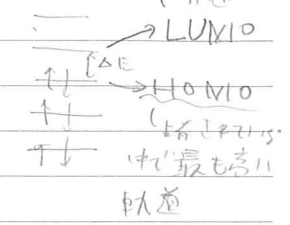 LUMO
ΔE
HOMO
(占有されている
中で最も高い
軌道